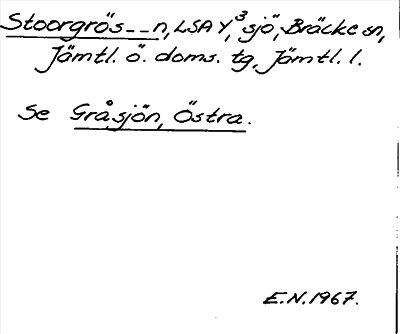 Stoorgrös--n, LSA Y, ³sjö, Bräcke sn,
Jämtl. ö. doms. tg, Jämtl. l.
Se Gråsjön, Östra.
E.N. 1967.